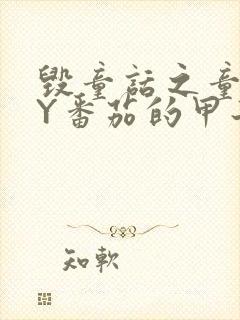 毁童话之童
Y番茄的甲
知軟